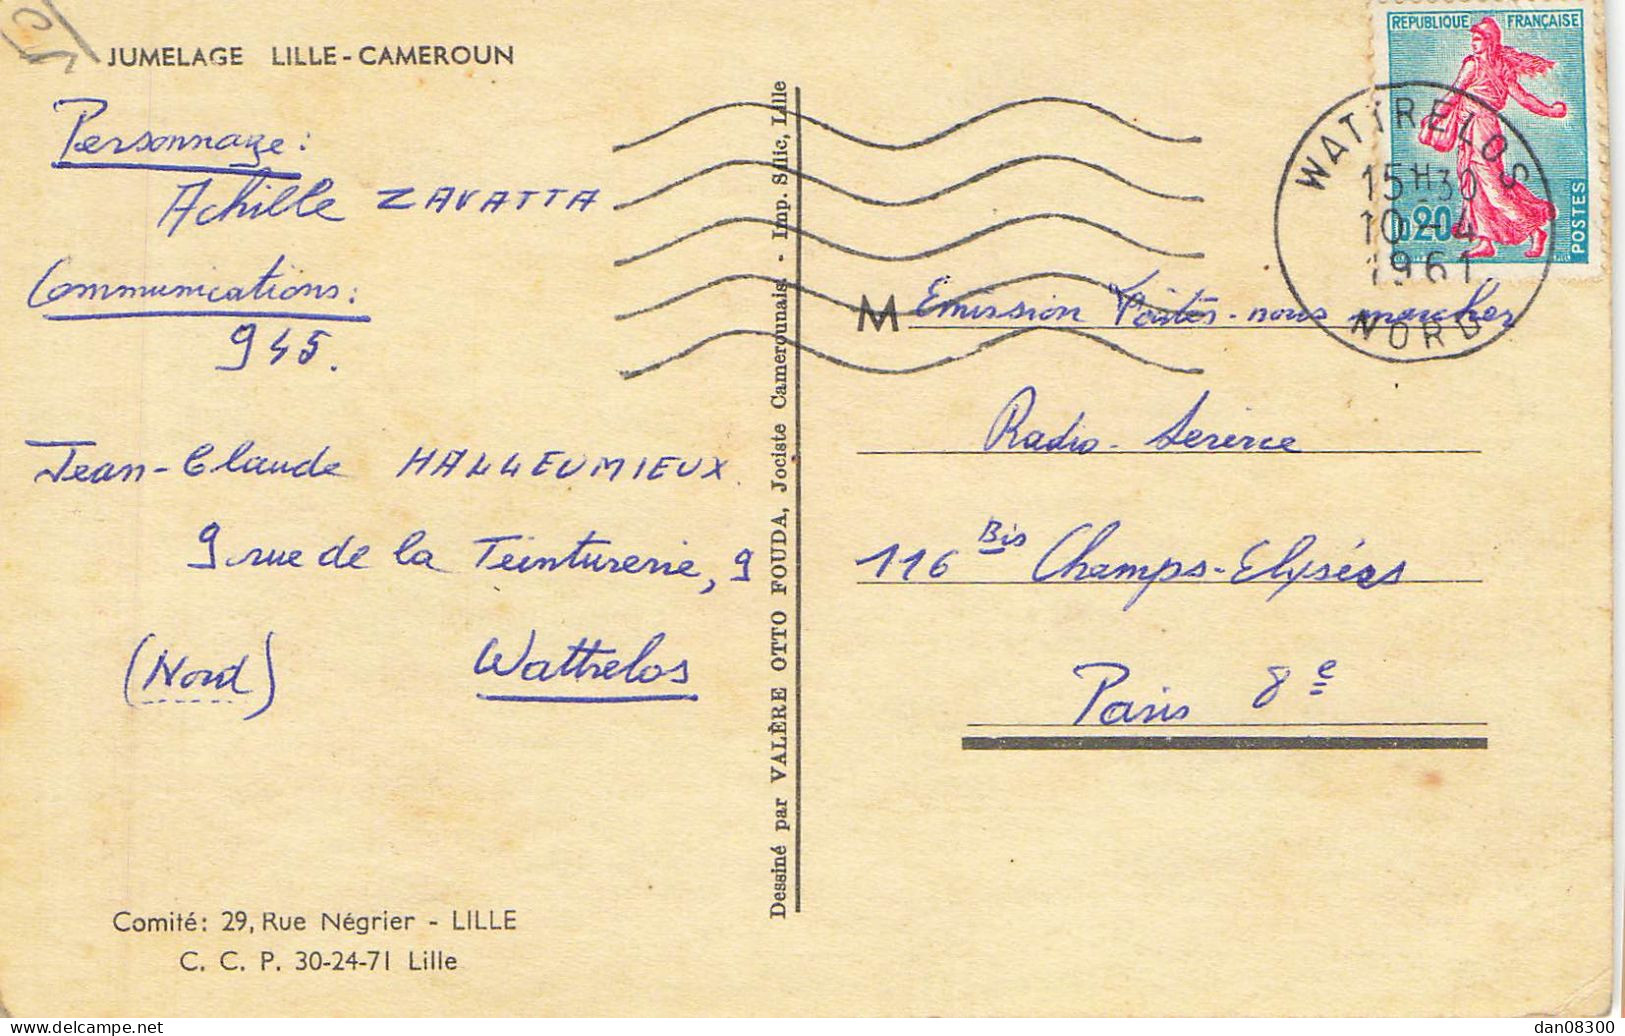 JUMELAGE LILLE-CAMEROUN
Personnage:
Achille ZAVATTA
Communications:
945.
Jean-Claude HALLEUMIEUX
9 rue de la Teinturerie, 9
(Nord) Wattrelos
Comité: 29, Rue Négrier - LILLE
C. C. P. 30-24-71 Lille
Dessiné par VALÈRE OTTO FOUDA, Jociste Camerounais - Imp. Silic, Lille
REPUBLIQUE FRANÇAISE
0,20
POSTES
WATTRELOS
15H30
10-4
1961
NORD
M Emission Faites-nous marcher
Radio-Service
116 Bis Champs-Elysées
Paris 8e
delcampe.net
dan08300